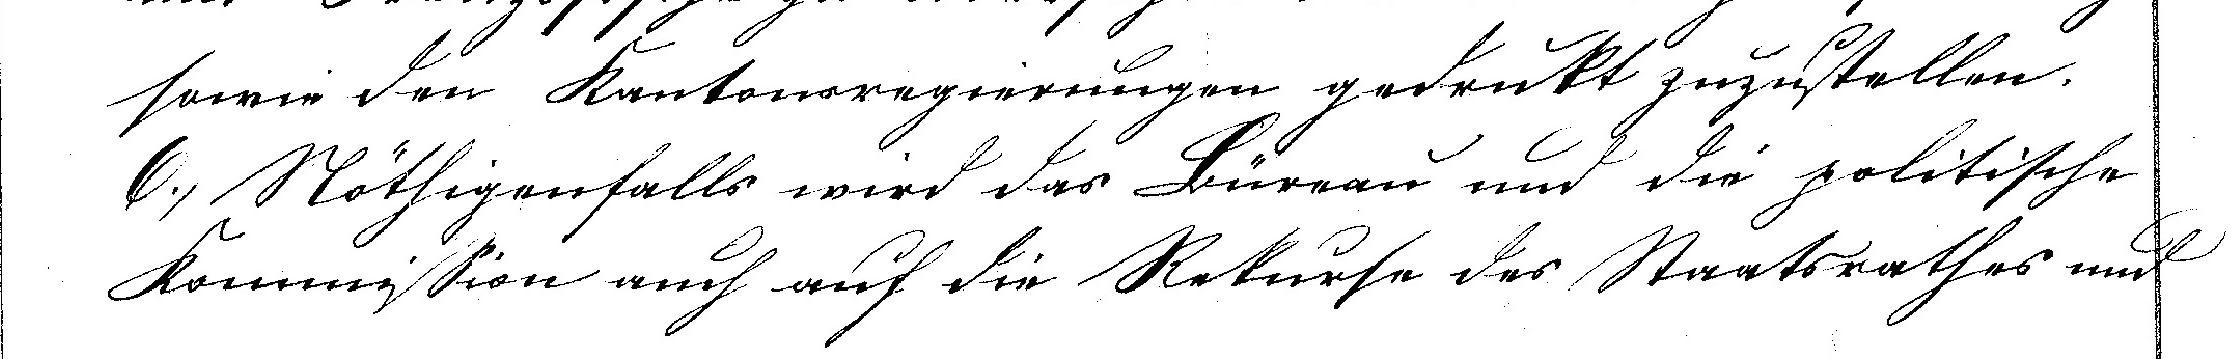 sowie den Kantonsregierungen gedrukt zuzustellen.
6., Nöthigenfalls wird das Büreau und die politische
Kommission auch auf die Rekurse des Staatsrathes und